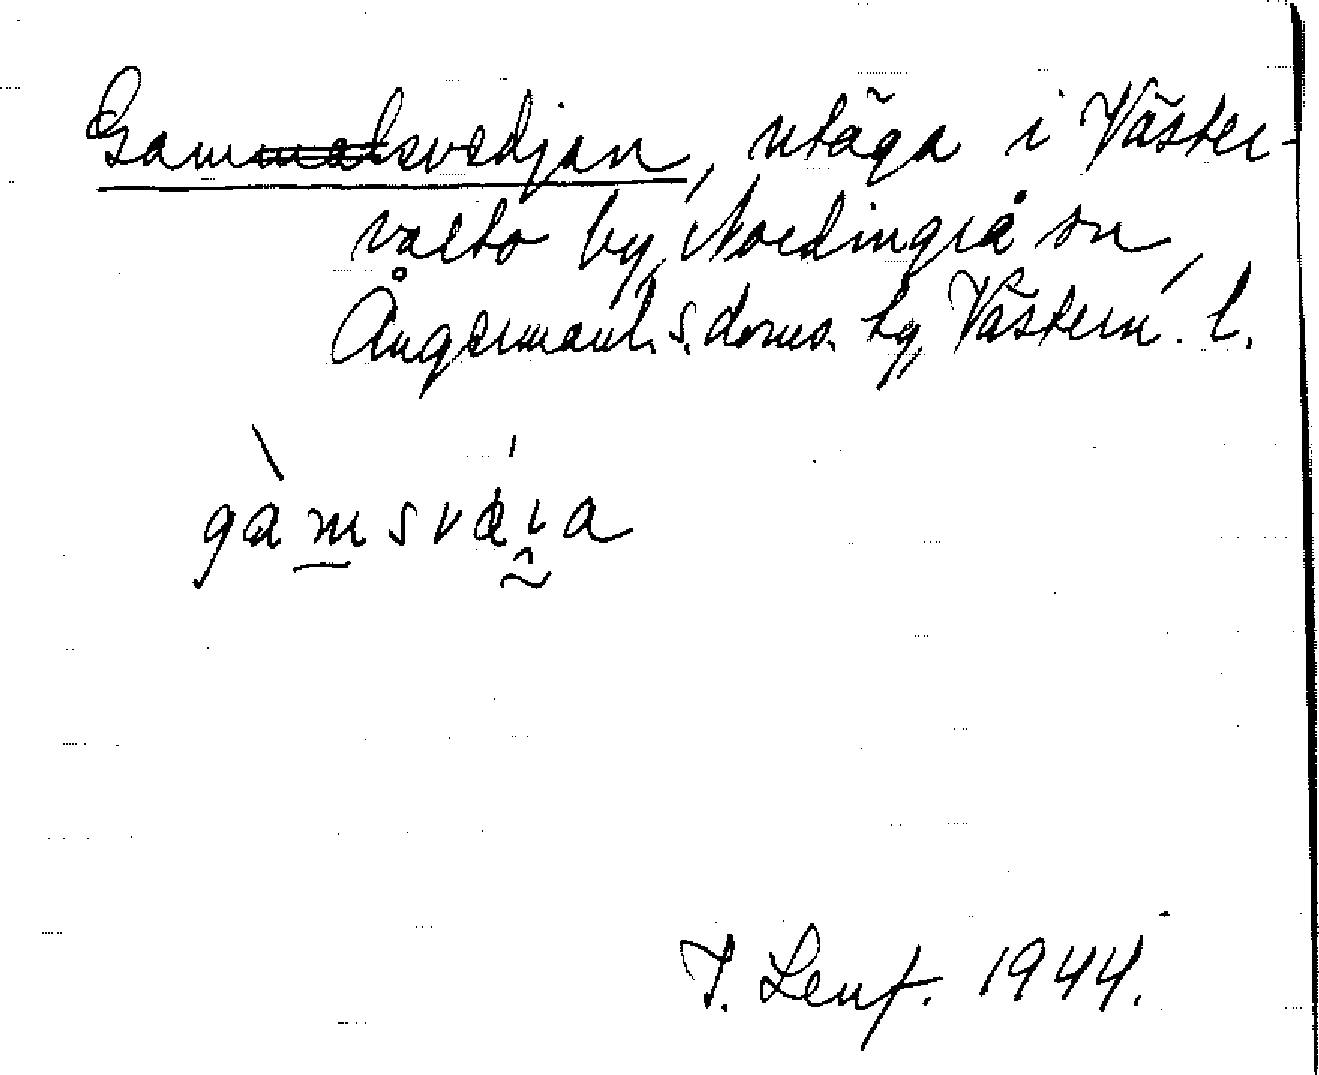 Gamsvedjan, utäga i Väster-
valto by, Nordingrå sn,
Ångermanl. s. doms. tg, Västern. l.
gàmsvä́ɩa
J. Lenf. 1944.